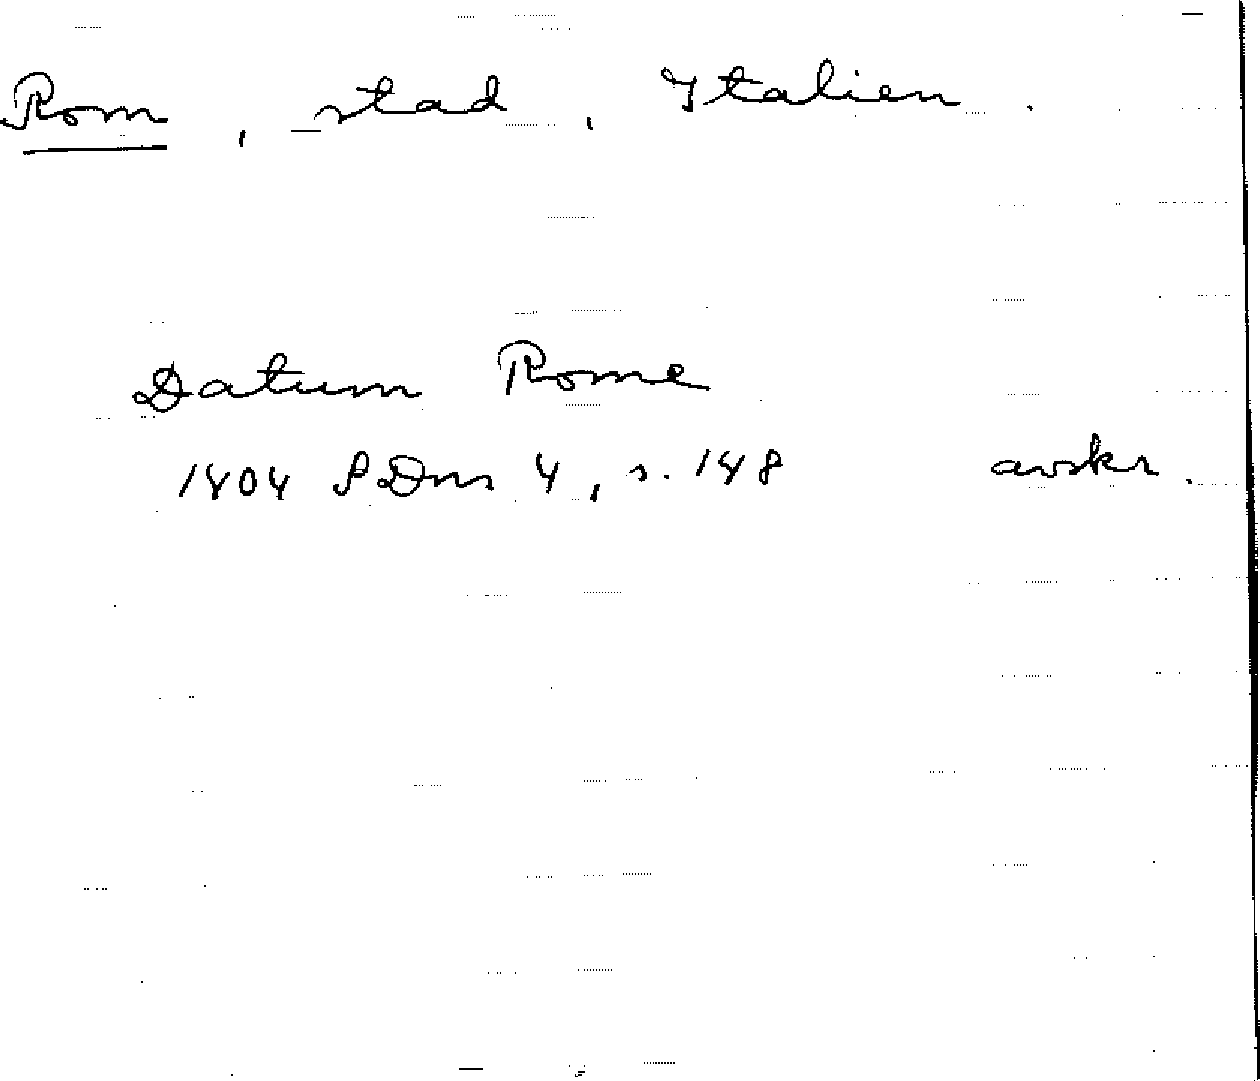 Rom, stad, Italien.
Datum Rome
1404 SDns 4, s. 148 avskr.